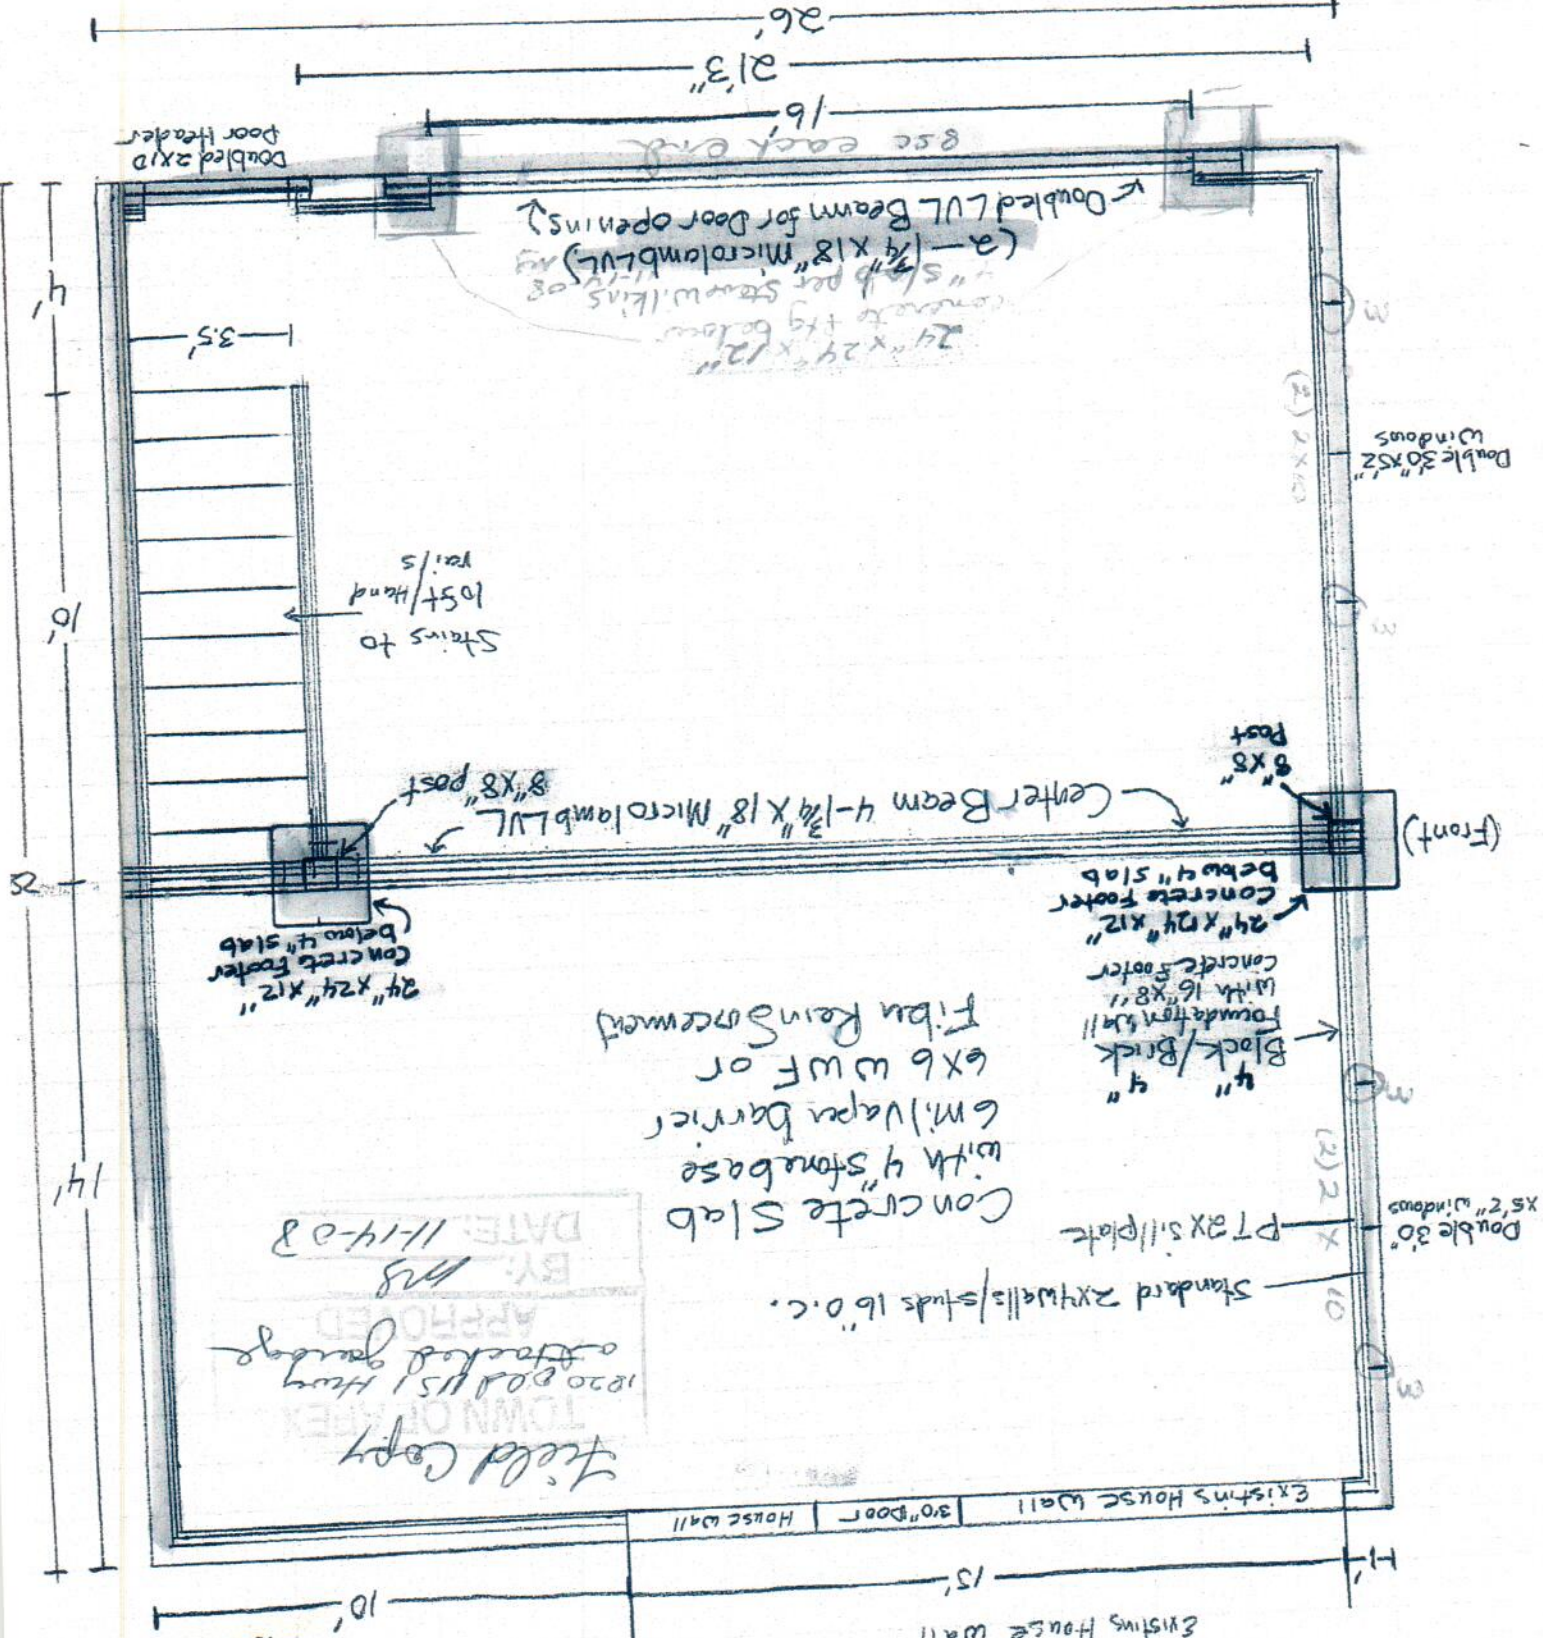 Existing House Wall
1'
15'
10'
Existing House Wall
3'0" Door
House Wall
Field Copy
TOWN OF APEX
1820 Old US 1 Hwy
attached garage
APPROVED
BY:
DATE: 11-14-08
Standard 2x4 walls/studs 16" o.c.
PT 2x sill plate
Double 3'0"
x5'2" windows
(2) 2 x 10
Concrete Slab
with 4" stone base
6 mil vaper barrier
6x6 WWF or
Fiber Reinforcement
4" 4"
Block/Brick
Foundation Wall
with 16"x8"
Concrete Footer
24"x24"x12"
Concrete Footer
below 4" slab
24"x24"x12"
Concrete Footer
below 4" slab
(Front)
8"x8"
Post
Center Beam 4-1 3/4" x 18" Microlamb LVL
8"x8" post
Stairs to
loft/Hand
rails
Double 3'0"x5'2"
windows
(2) 2x10
3.5'
14'
10'
4'
24" x 24" x 12"
concrete ftg below
4" slab per Steve Wilkins
(2-1 3/4" x 18" Microlamb LVL)
Doubled LVL Beam for Door opening
Doubled 2x10
Door Header
16'
21'3"
26'